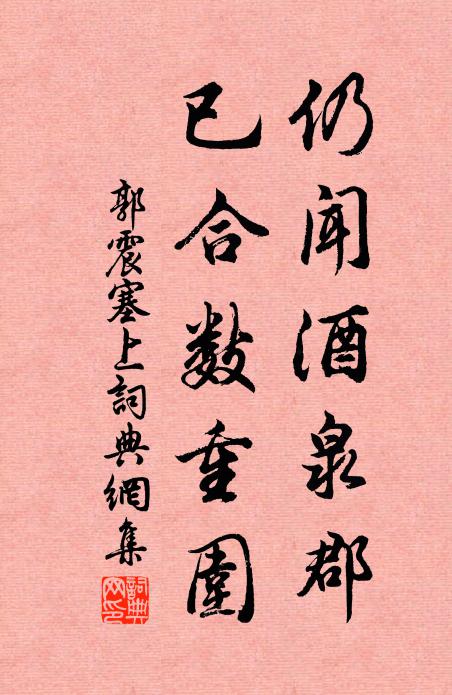 仍闻酒泉郡
已合数重围
郭震塞上詞典網集
詞典网印